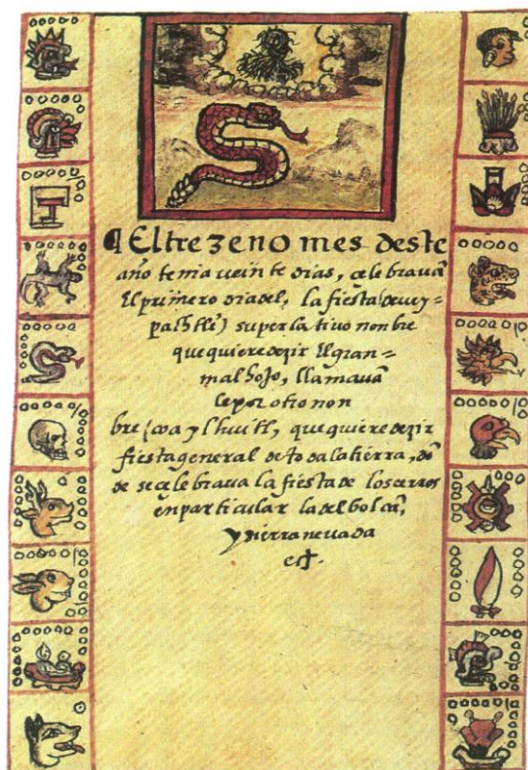 ¶ El trezeno mes deste
año tenia ueinte dias, celebrauā
El primero dia del, la fiesta (
) superlatiuo nonbre
que quiere dezir El gran
malhojo, llamauā
le por otro non
bre (coaylhuitl, que quiere dezir
fiesta general de toda la tierra, dō
de se çelebraua la fiesta de los cerros
en particular la del bolcā,
y sierra neuada